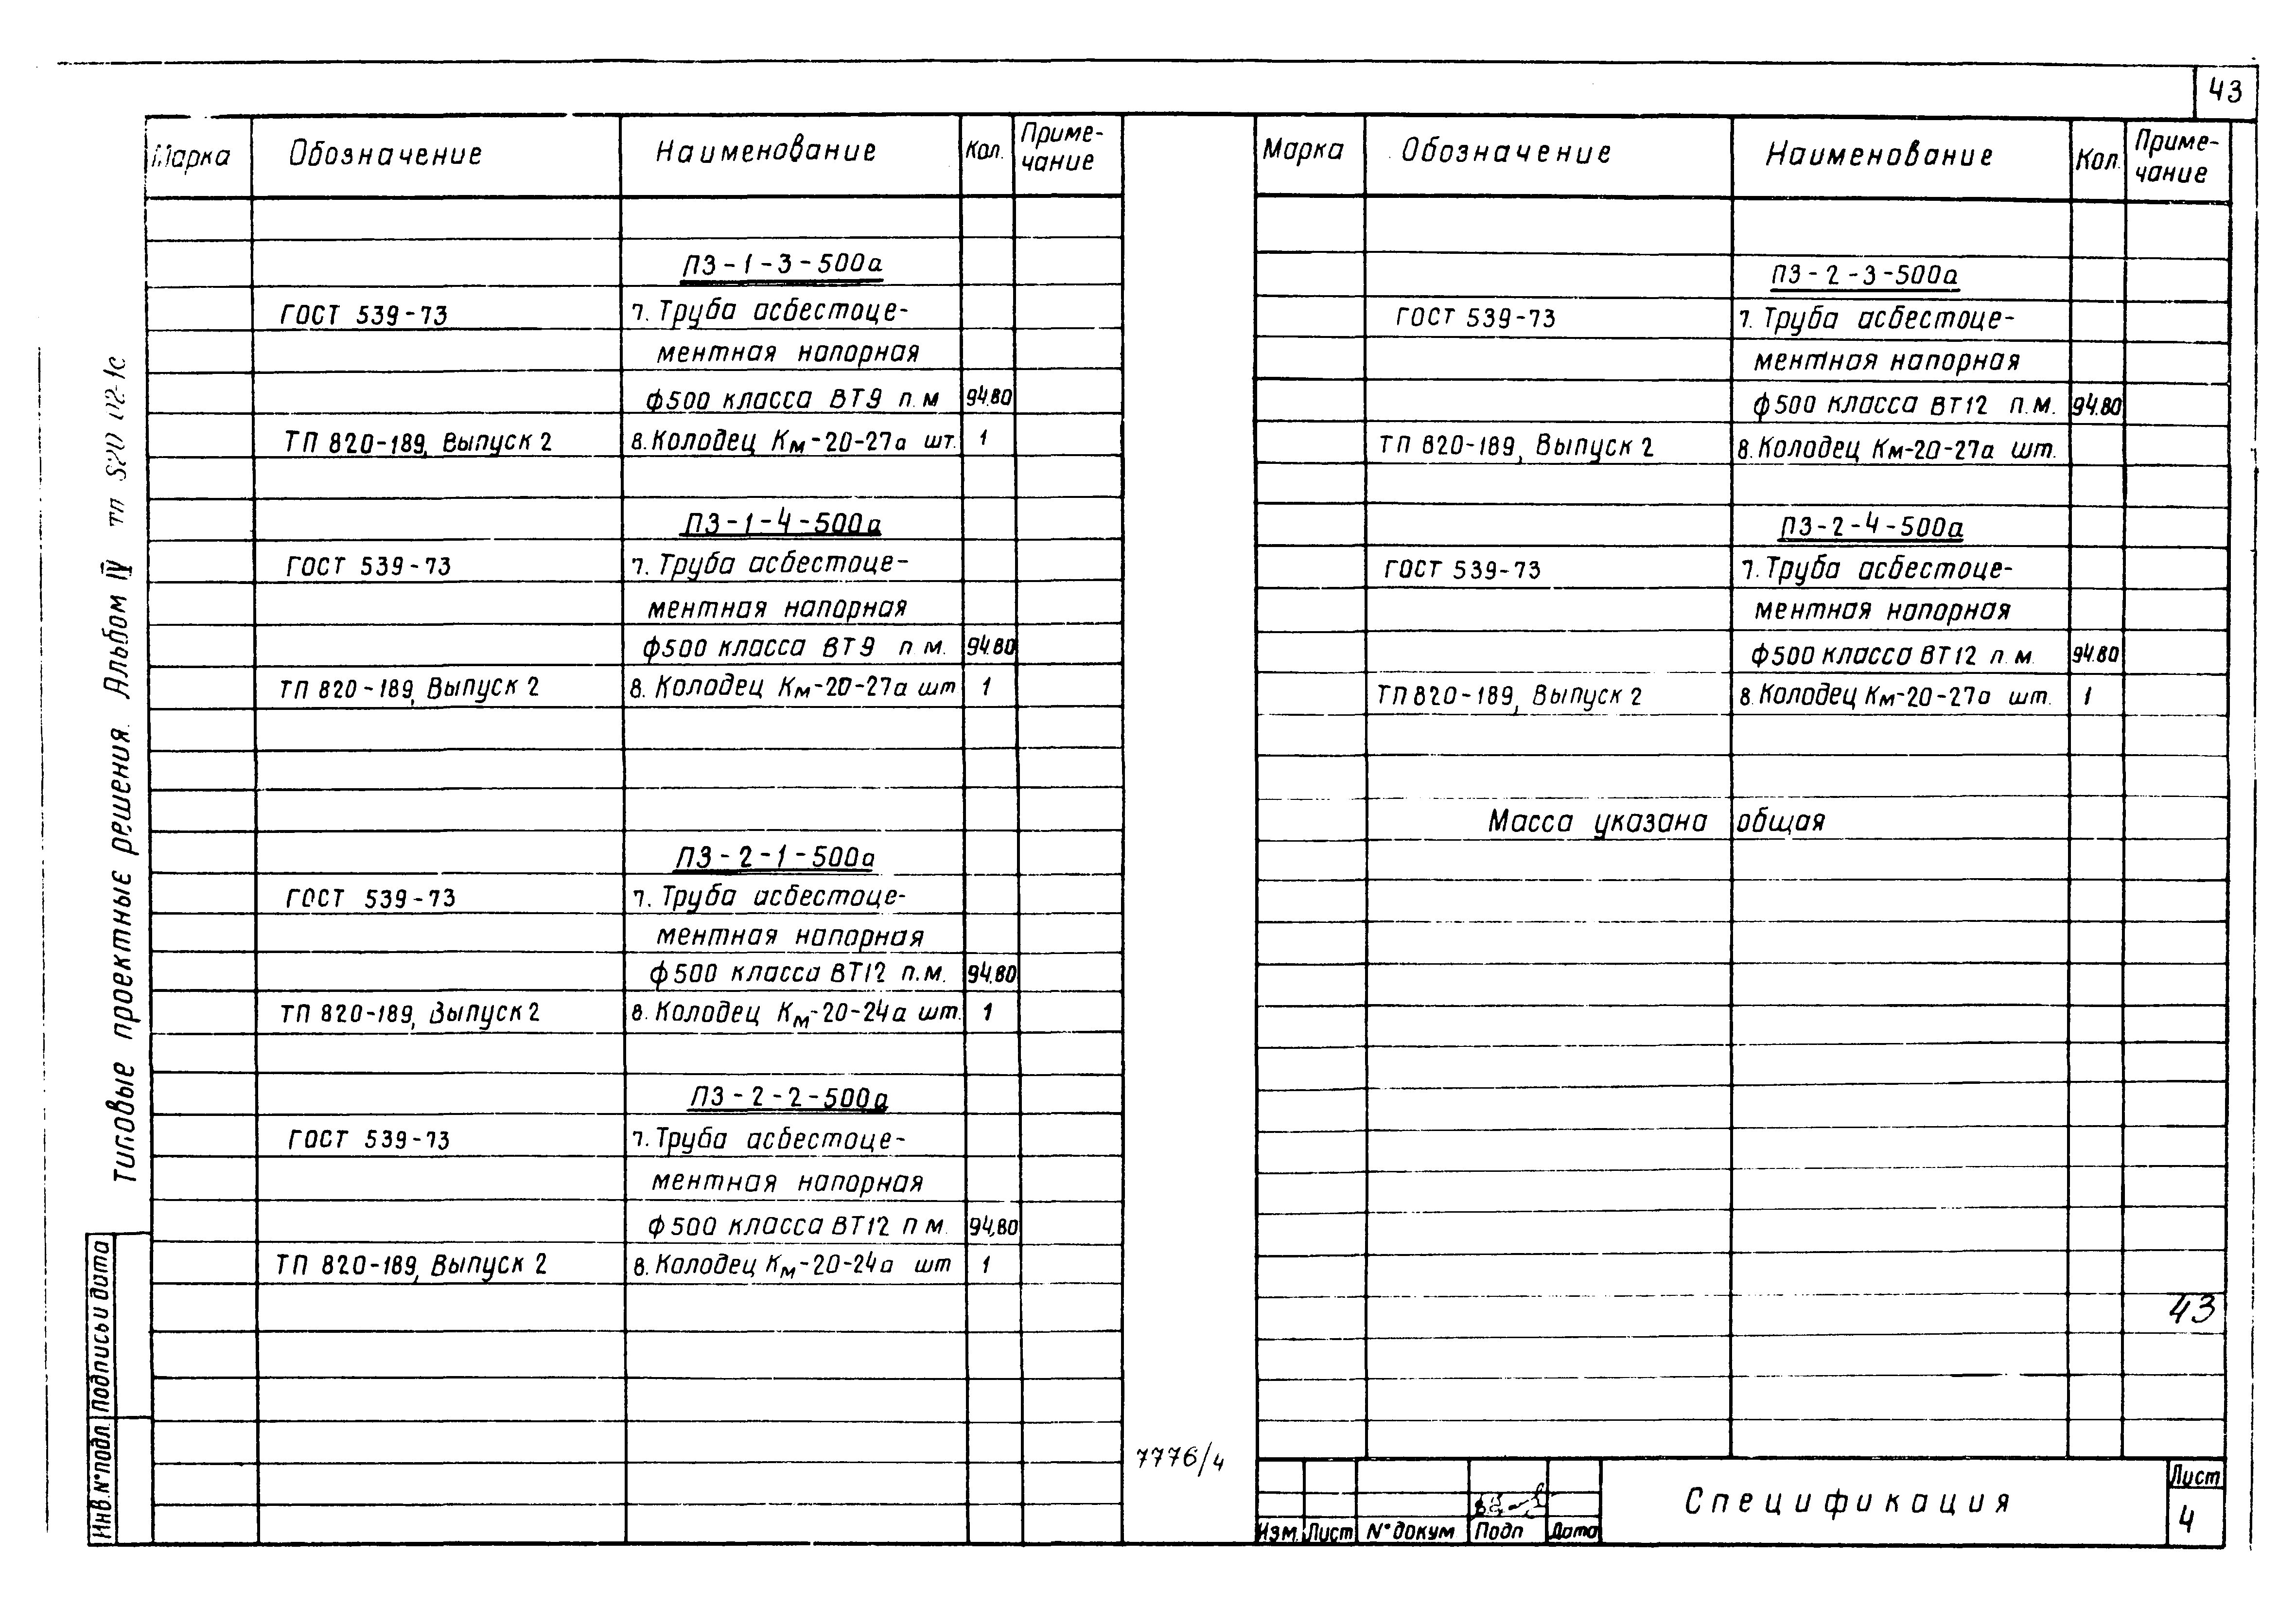 43
Марка Обозначение Наименование Кол. Приме-
чание
ПЗ-1-3-500а
ГОСТ 539-73 7. Труба асбестоце-
ментная напорная
ф500 класса ВТ9 п.м 94.80
ТП 820-189, Выпуск 2 8. Колодец Км-20-27а шт. 1
ПЗ-1-4-500а
ГОСТ 539-73 7. Труба асбестоце-
ментная напорная
ф500 класса ВТ9 п м. 94.80
ТП 820-189, Выпуск 2 8. Колодец Км-20-27а шт 1
ПЗ-2-1-500а
ГОСТ 539-73 7. Труба асбестоце-
ментная напорная
ф500 класса ВТ12 п.м. 94.80
ТП 820-189, Выпуск 2 8. Колодец Км-20-24а шт. 1
ПЗ-2-2-500а
ГОСТ 539-73 7. Труба асбестоце-
ментная напорная
ф500 класса ВТ12 п м 94,80
ТП 820-189, Выпуск 2 8. Колодец Км-20-24а шт 1
Марка Обозначение Наименование Кол. Приме-
чание
ПЗ-2-3-500а
ГОСТ 539-73 7. Труба асбестоце-
ментная напорная
ф500 класса ВТ12 п.м. 94.80
ТП 820-189, Выпуск 2 8. Колодец Км-20-27а шт.
ПЗ-2-4-500а
ГОСТ 539-73 7. Труба асбестоце-
ментная напорная
ф500 класса ВТ12 п.м. 94.80
ТП 820-189, Выпуск 2 8. Колодец Км-20-27а шт. 1
Масса указана общая
43
7776/4
Изм. Лист N° докум Подп Дата
Спецификация
Лист
4
Типовые проектные решения. Альбом IV тп 820-02-1с
Инв. N° подл. Подпись и дата